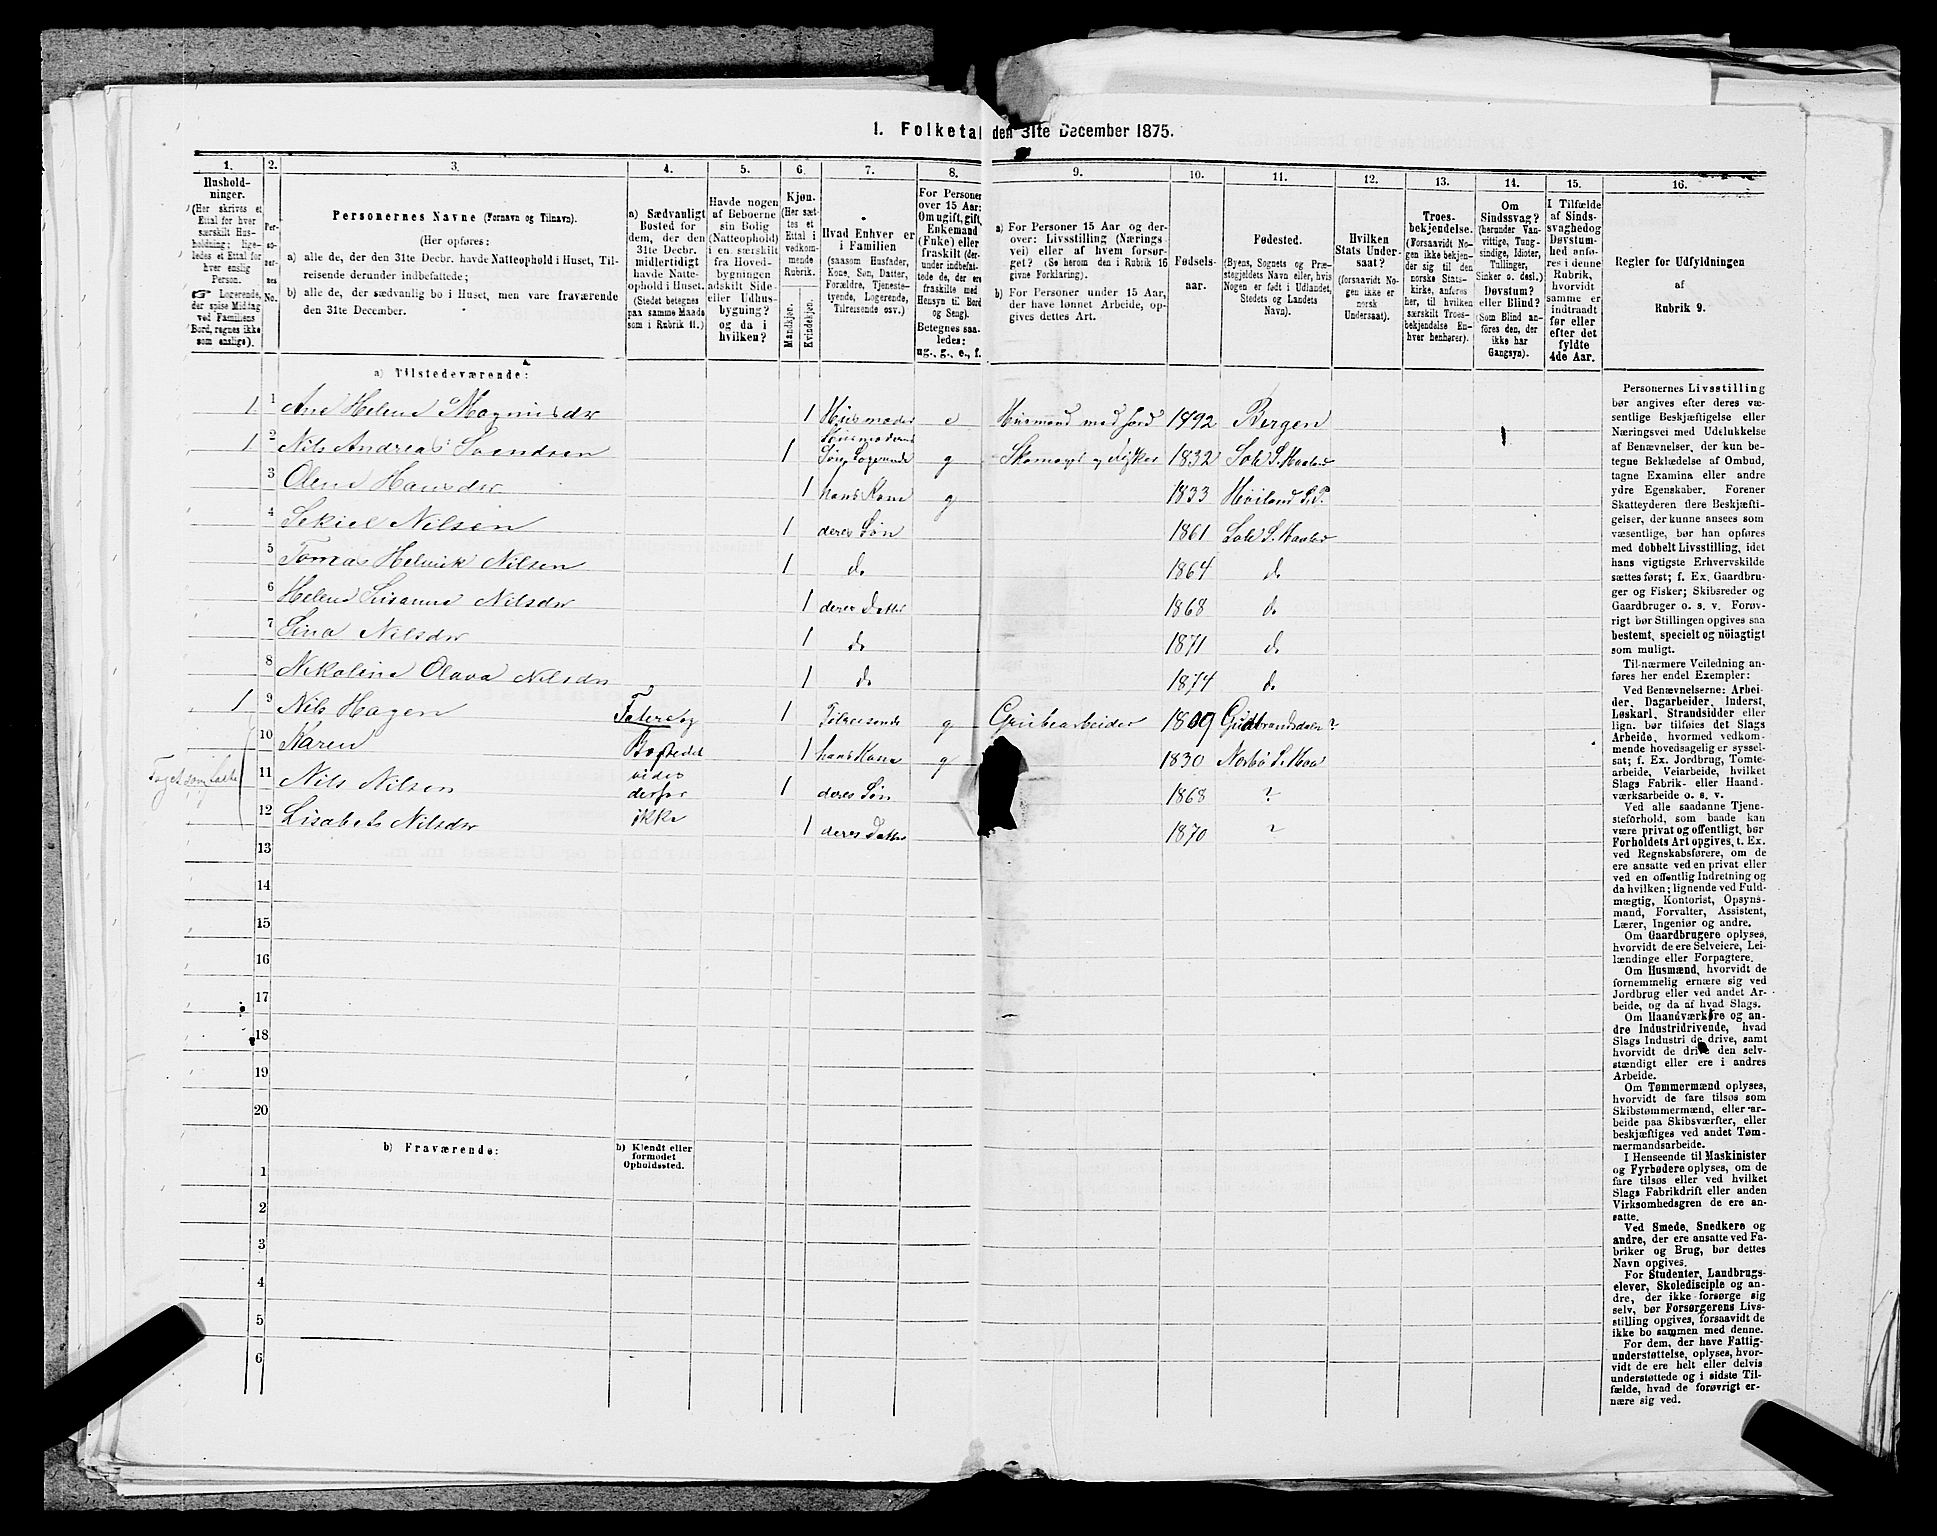 1. Folketal den 31te December 1875.
1. 2. 3. 4. 5. 6. 7. 8. 9. 10. 11. 12. 13. 14. 15. 16.
Hushold-
ninger.
(Her skrives et
Ettal for hver
særskilt Hus-
holdning; lige-
ledes et Ettal for
hver enslig
Person.
☞ Logerende,
der spise Middag
ved Familiens
Bord, regnes ikke
som enslige).
Per-
so-
ner-
nes
No.
Personernes Navne (Fornavn og Tilnavn).
(Her opføres:
a) alle de, der den 31te Decbr. havde Natteophold i Huset, Til-
reisende derunder indbefattede;
b) alle de, der sædvanlig bo i Huset, men vare fraværende
den 31te December.
a) Sædvanligt
Bosted for
dem, der den
31te Decbr.
midlertidigt
havde Natte-
ophold i Huset.
(Stedet betegnes
paa samme Maade
som i Rubrik 11.)
Havde nogen
af Beboerne
sin Bolig
(Natteophold)
i en særskilt
fra Hoved-
bygningen
adskilt Side-
eller Udhus-
bygning?
og da i
hvilken?
Kjøn.
(Her sæt-
tes et
Ettal i
vedkom-
mende
Rubrik.
Mandkjøn.
Kvindekjøn.
Hvad Enhver er
i Familien
(saasom Husfader,
Kone, Søn, Datter,
Forældre, Tjeneste-
tyende, Logerende,
Tilreisende osv.)
For Personer
over 15 Aar:
Om ugift, gift,
Enkemand
(Enke) eller
fraskilt (der-
under indbefat-
tede de, der ere
fraskilte med
Hensyn til Bord
og Seng).
Betegnes saa-
ledes:
ug., g., e., f.
a) For Personer 15 Aar og der-
over: Livsstilling (Nærings-
vei) eller af hvem forsør-
get? (Se herom den i Rubrik 16
givne Forklaring).
b) For Personer under 15 Aar,
der have lønnet Arbeide, op-
gives dettes Art.
Fødsels-
aar.
Fødested.
(Byens, Sognets og Præ-
stegjeldets Navn eller, hvis
Nogen er født i Udlandet,
Stedets og Landets
Navn).
Hvilken
Stats Under-
saat?
(forsaavidt No-
gen ikke er
norsk
Undersaat).
Troes-
bekjendelse.
(Forsaavidt No-
gen ikke bekjen-
der sig til den
norske Stats-
kirke, anføres
her, til hvilken
særskilt Troes-
bekjendelse En-
hver henhører).
Om
Sindssvag?
(herunder Van-
vittige, Tung-
sindige, Idioter,
Tullinger,
Sinker o. desl.)
Døvstum?
eller Blind?
(Som Blind an-
føres den, der
ikke har
Gangsyn).
I Tilfælde
af Sinds-
svaghed og
Døvstum-
hed anfø-
res i denne
Rubrik,
hvorvidt
samme er
indtraadt
før eller
efter det
fyldte
4de Aar.
Regler for Udfyldningen
af
Rubrik 9.
a) Tilstedeværende:
1 1 Ane Helene Magnusdr 1 Husmoder e Husmand med Jord 1892 Bergen
1 2 Nils Andreas Svendsen 1 Søn g Skomager og Fisker 1832 Sole S.
3 Olene Hansdr 1 hans Kone g 1833 Høiland P.
4 Sekiel Nilsen 1 deres Søn 1861 Sole S.
5 Tomas Helmik Nilsen 1 do 1864 do
6 Helene Susanne Nilsdr 1 deres Datter 1868 do
7 Sina Nilsdr 1 do 1871 do
8 Nikoline Olava Nilsdr 1 do 1874 do
1 9 Nils Hagen Tatere og 1 Tilreisende g Grubearbeider 1809 Gudbrandsdalen?
10 Karen Bostedet 1 hans Kone g 1830 Nerbø S.
11 Nils Nilsen vides derfor 1 deres Søn 1868 ?
12 Lisabet Nilsdr ikke 1 deres Datter 1870 ?
13
14
15
16
17
18
19
20
b) Fraværende:
b) Kjendt eller
formodet
Opholdssted.
1
2
3
4
5
6
Personernes Livsstilling
bør angives efter deres væ-
sentlige Beskjæftigelse eller
Næringsvei med Udelukkelse
af Benævnelser, der kun be-
tegne Beklædelse af Ombud,
tagne Examina eller andre
ydre Egenskaber. Forener
Skatteyderen flere Beskjæfti-
gelser, der kunne ansees som
væsentlige, bør han opføres
med dobbelt Livsstilling, idet
hans vigtigste Erhvervskilde
sættes først; f. Ex. Gaardbru-
ger og Fisker; Skibsreder og
Gaardbruger o. s. v. Forøv-
rigt bør Stillingen opgives saa
bestemt, specielt og nöiagtigt
som muligt.
Til nærmere Veiledning an-
føres her endel Exempler:
Ved Benævnelserne: Arbei-
der, Dagarbeider, Inderst,
Løskarl, Strandsidder eller
lign. bør tilføies det Slags
Arbeide, hvormed vedkom-
mende hovedsagelig er syssel-
sat; f. Ex. Jordbrug, Tomte-
arbeide, Veiarbeide, hvilket
Slags Fabrik- eller Haand-
værksarbeide o. s. v.
Ved alle saadanne Tjene-
steforhold, som baade kan
være privat og offentligt, bør
Forholdets Art opgives, t. Ex.
ved Regnskabsførere, om de
ere ansatte ved en privat eller
ved en offentlig Indretning og
da hvilken; lignende ved Fuld-
mægtig, Kontorist, Opsyns-
mand, Forvalter, Assistent,
Lærer, Ingeniør og andre.
Om Gaardbrugere oplyses,
hvorvidt de ere Selveiere, Lei-
lændinge eller Forpagtere.
Om Husmænd, hvorvidt de
fornemmelig ernære sig ved
Jordbrug eller ved andet Ar-
beide, og da af hvad Slags.
Om Haandværkere og an-
dre Industridrivende, hvad
Slags Industri de drive, samt
hvorvidt de drive den selv-
stændigt eller ere i andres
Arbeide.
Om Tømmermænd oplyses,
hvorvidt de fare tilsøs som
Skibstømmermænd, eller ar-
beide paa Skibsværfter, eller
beskjæftiges ved andet Tøm-
mermandsarbeide.
I Henseende til Maskinister
og Fyrbødere oplyses, om de
fare tilsøs eller ved hvilket
Slags Fabrikdrift eller anden
Virksomhedsgren de ere an-
satte.
Ved Smede, Snedkere og
andre, der ere ansatte ved Fa-
briker og Brug, bør dettes
Navn opgives.
For Studenter, Landbrugs-
elever, Skoledisciple og an-
dre, der ikke forsørge sig
selv, bør Forsørgerens Livs-
stilling opgives, forsaavidt de
ikke bo sammen med denne.
For dem, der have Fattig-
understøttelse, oplyses, hvor-
vidt de ere helt eller delvis
understøttede og i sidste Til-
fælde, hvad de forøvrigt er-
nære sig ved.